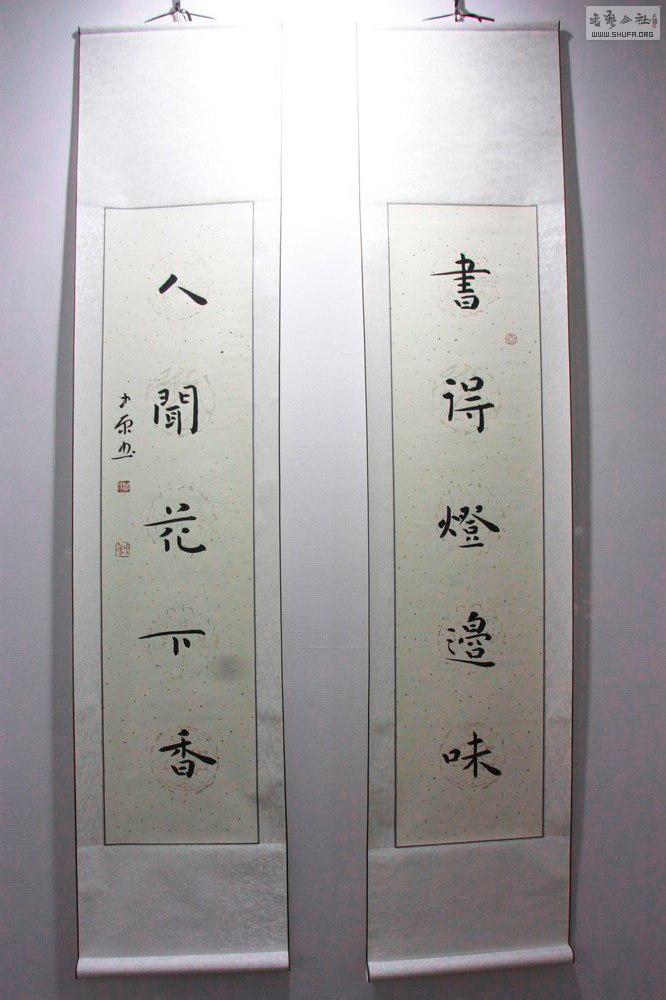 書得燈邊味
人聞花下香
書艺公社
WWW.SHUFA.ORG